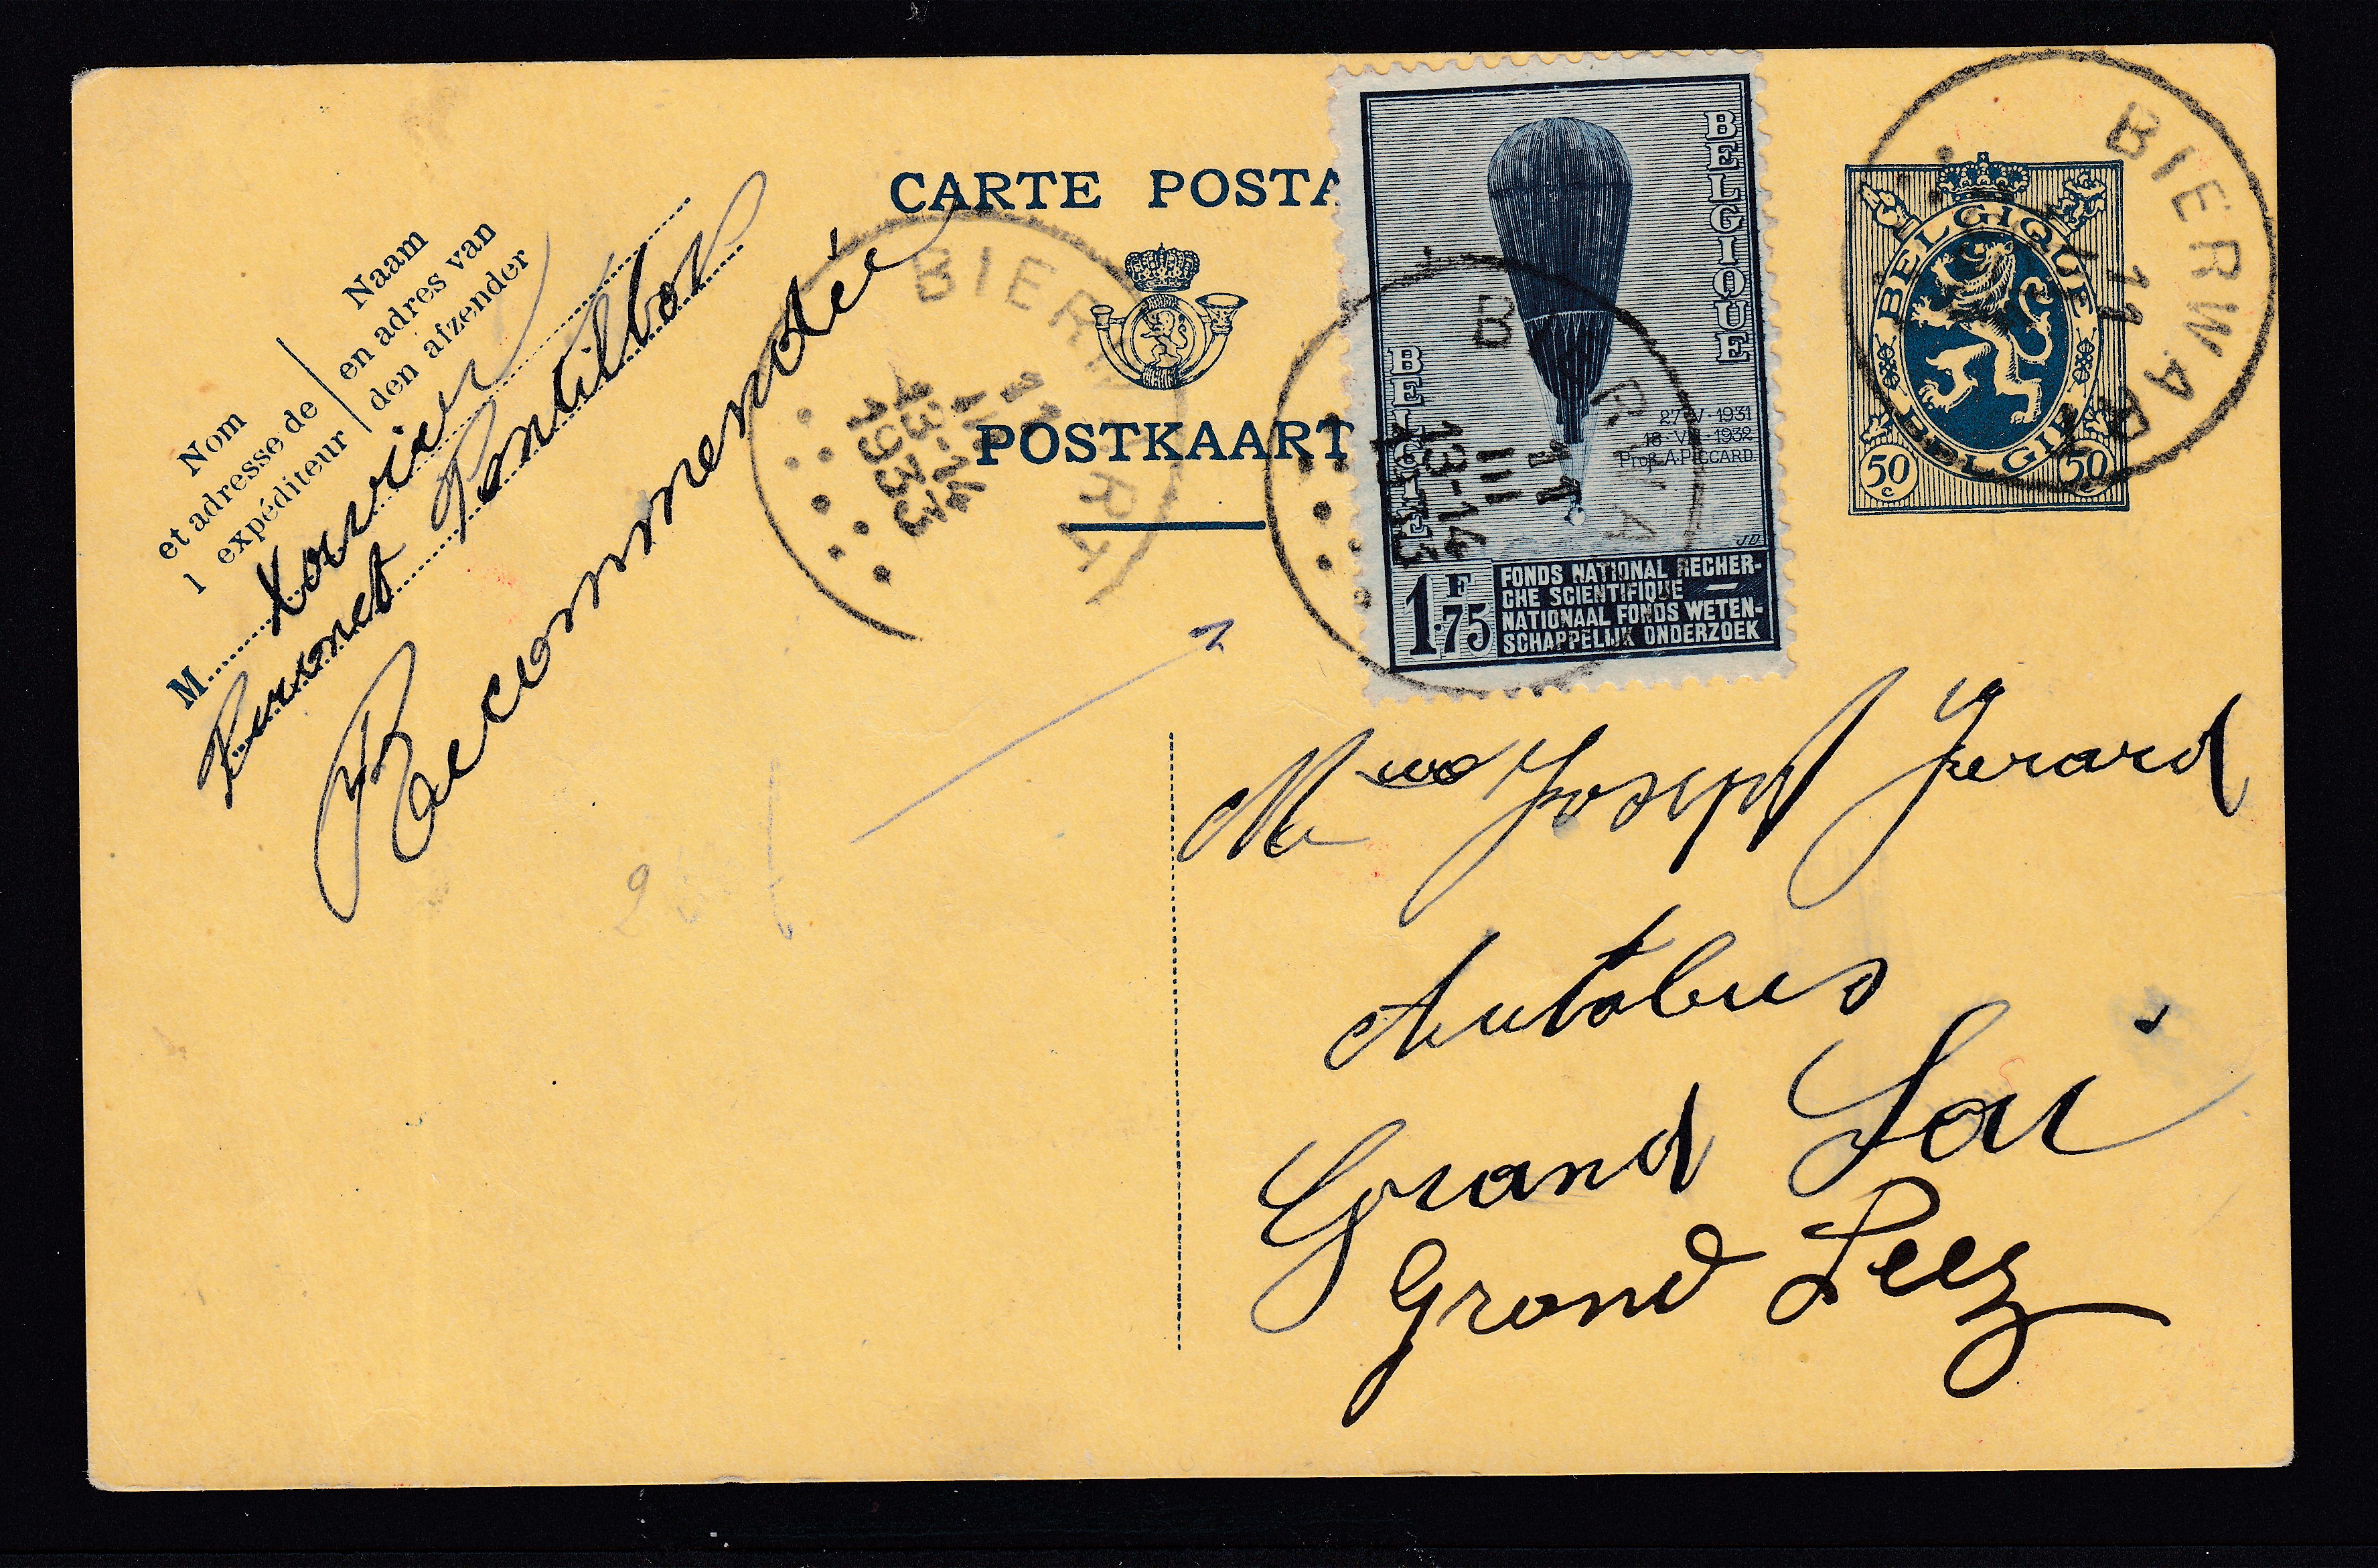 CARTE POSTA
POSTKAART
Nom
et adresse de
l expéditeur
Naam
en adres van
den afzender
M
Xavier
Pontillas
Recommendée
BIERWART
13-14
1933
BELGIQUE
BELGIË
27 V 1931
18 VIII 1932
Prof. A. PICCARD
JD
1F75
FONDS NATIONAL RECHER-
CHE SCIENTIFIQUE —
NATIONAAL FONDS WETEN-
SCHAPPELIJK ONDERZOEK
BIERWART
III
13-14
BIERWART
11
BELGIQUE
BELGIË
50 c
50 c
Joseph Gerard
Autobus
Grand
Grand Leez